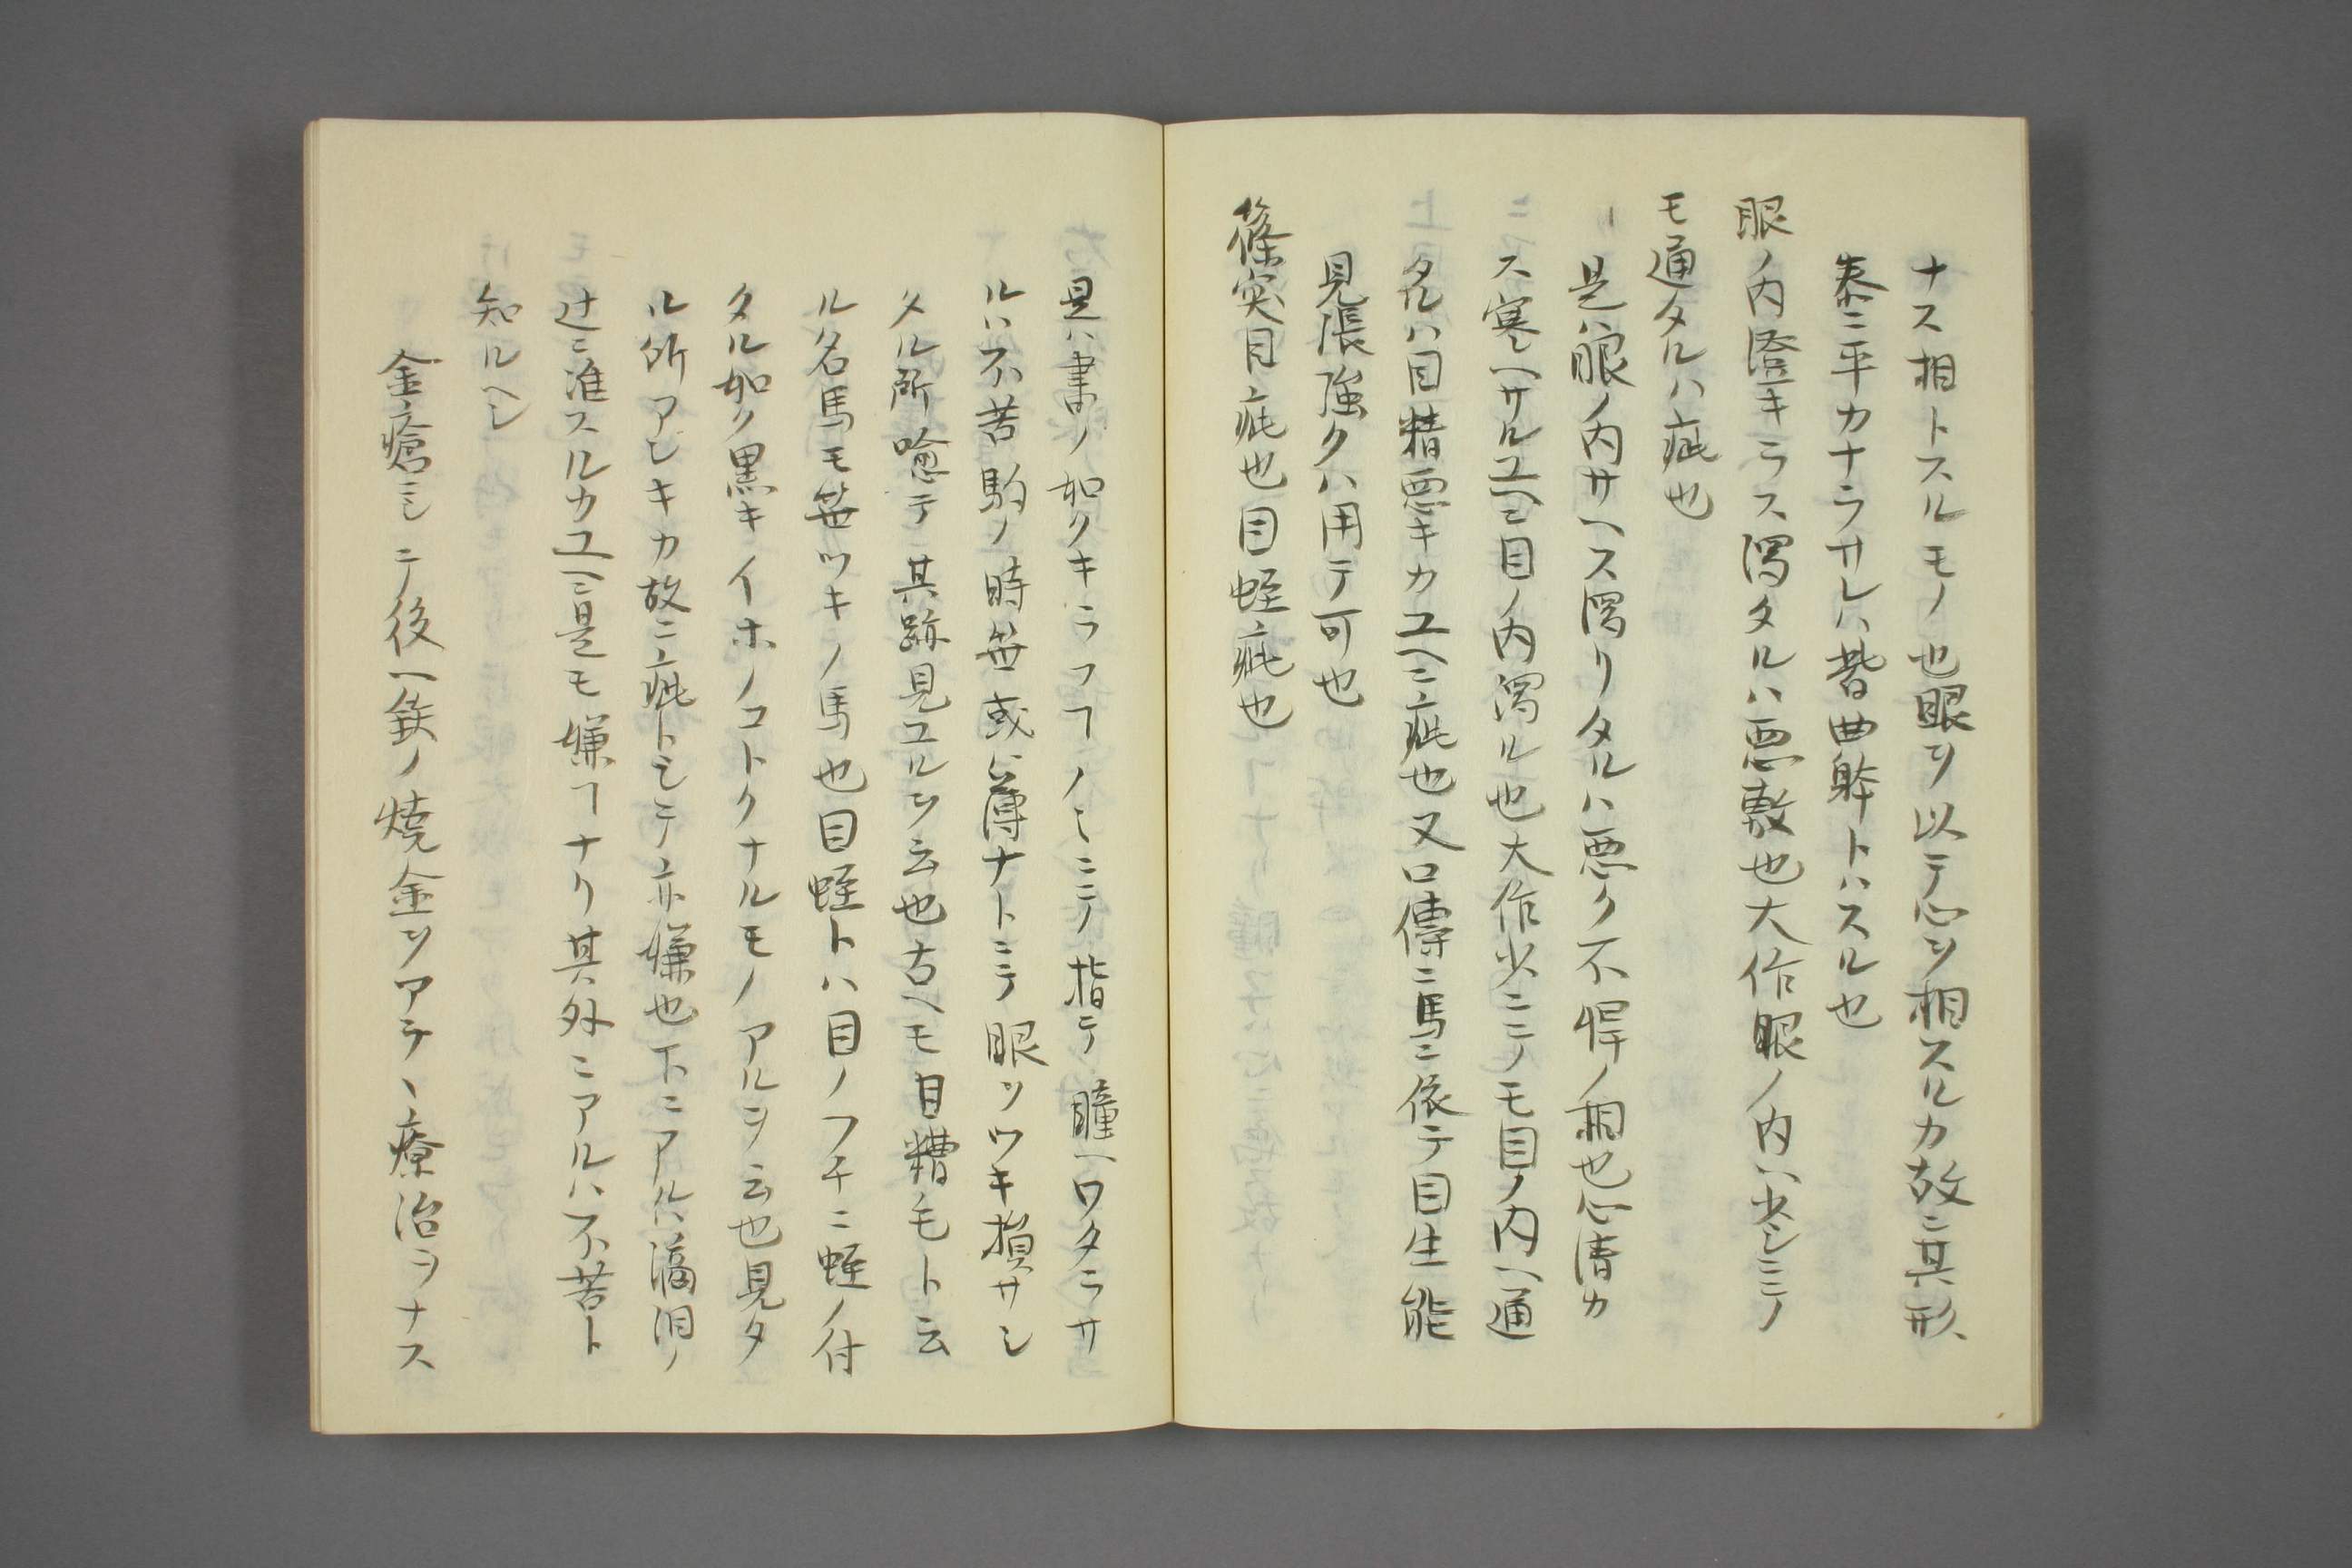 ナス相トスルモノ也眼ヲ以テ心ヲ相スルカ故ニ其形
泰ニ平カナラサレハ皆曲幹トハスル也
眼ノ内澄キラス濁タルハ悪敷也大作眼ノ内ハ少シニノ
モ通タルハ疵也
是ハ眼ノ内サヘス濁リタルハ悪ク不悍ノ相也心清カ
ス寒ヘサルユヘニ目ノ内濁ル也大作少ニノモ目ノ内ヘ通
タルハ目精悪キカユヘニ疵也又口傳ニ馬ニ依テ目生能
見張強クハ用テ可也
篠突目疵也目蛭疵也
是ハ書ノ如クキラフヿノミニノ指テ瞳ヘワタラサ
ルハ不苦駒ノ時笹或ハ薄ナトニテ眼ヲツキ損サシ
タル所喩テ其跡見ユルヲ云也古ヘモ目糟毛ト云
ル名馬モ笹ツキノ馬也目蛭トハ目ノフチニ蛭ノ付
タル如ク黒キイホノコトクナルモノアルヲ云也見タ
ル所アシキカ故ニ疵トシテ亦嫌也下ニアルハ滴泪ノ
辻ニ准スルカユヘニ是モ嫌フナリ其外ニアルハ不苦ト
知ルヘシ
金瘡ミシニテ後ヘ鉄ノ焼金ヲアテヽ療治ヲナス